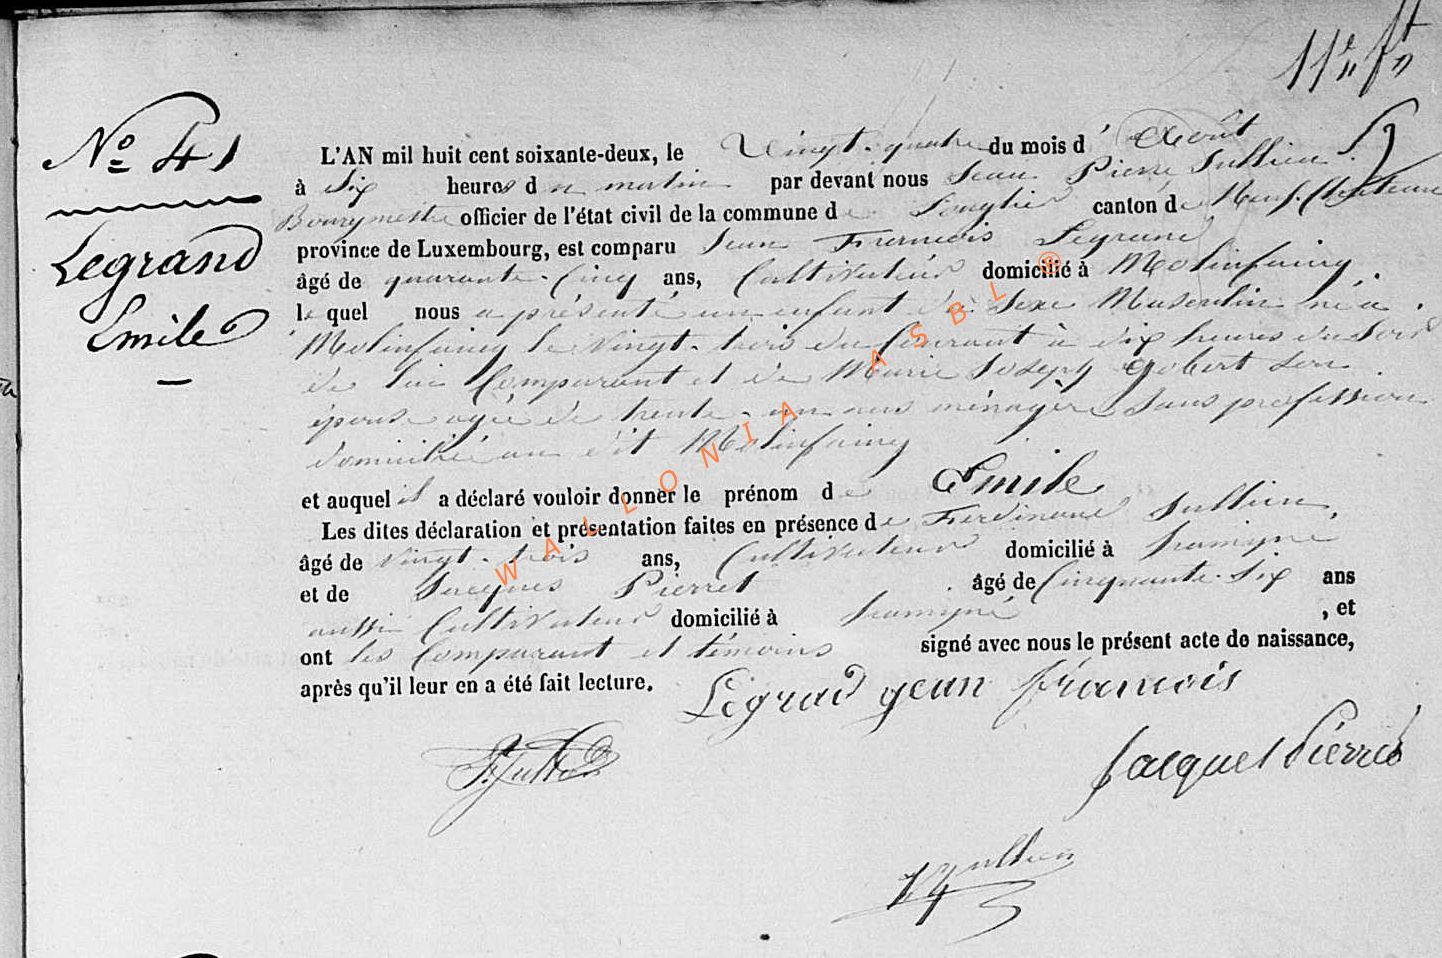 11e ft
No 41
Legrand
Emile
L'AN mil huit cent soixante-deux, le Vingt-quatre du mois d'Août
à Six heures du matin par devant nous Jean Pierre Jullien
Bourgmestre officier de l'état civil de la commune de Longlier canton de Neufchateau
province de Luxembourg, est comparu Jean Francois Legrand
âgé de quarante-Cinq ans, Cultivateur domicilié à Molinfaing.
le quel nous a présenté un enfant du Sexe Masculin né à
Molinfaing le vingt-trois du Courant à dix heures du Soir
de lui Comparant et de Marie Joseph Gobert son
épouse agée de trente-un ans ménagère Sans profession
domiciliée au dit Molinfaing
et auquel il a déclaré vouloir donner le prénom de Emile
Les dites déclaration et présentation faites en présence de Ferdinand Jullien,
âgé de vingt-trois ans, Cultivateur domicilié à
et de Jacques Pierret âgé de Cinquante-Six ans
aussi Cultivateur domicilié à , et
ont les Comparant et témoins signé avec nous le présent acte de naissance,
après qu'il leur en a été fait lecture.
Legrad jean francois
F. Jullien
Jacques Pierret
Jullien
WALLONIA ASBL ®